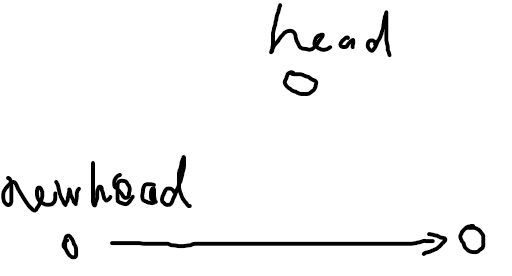 head
newhead